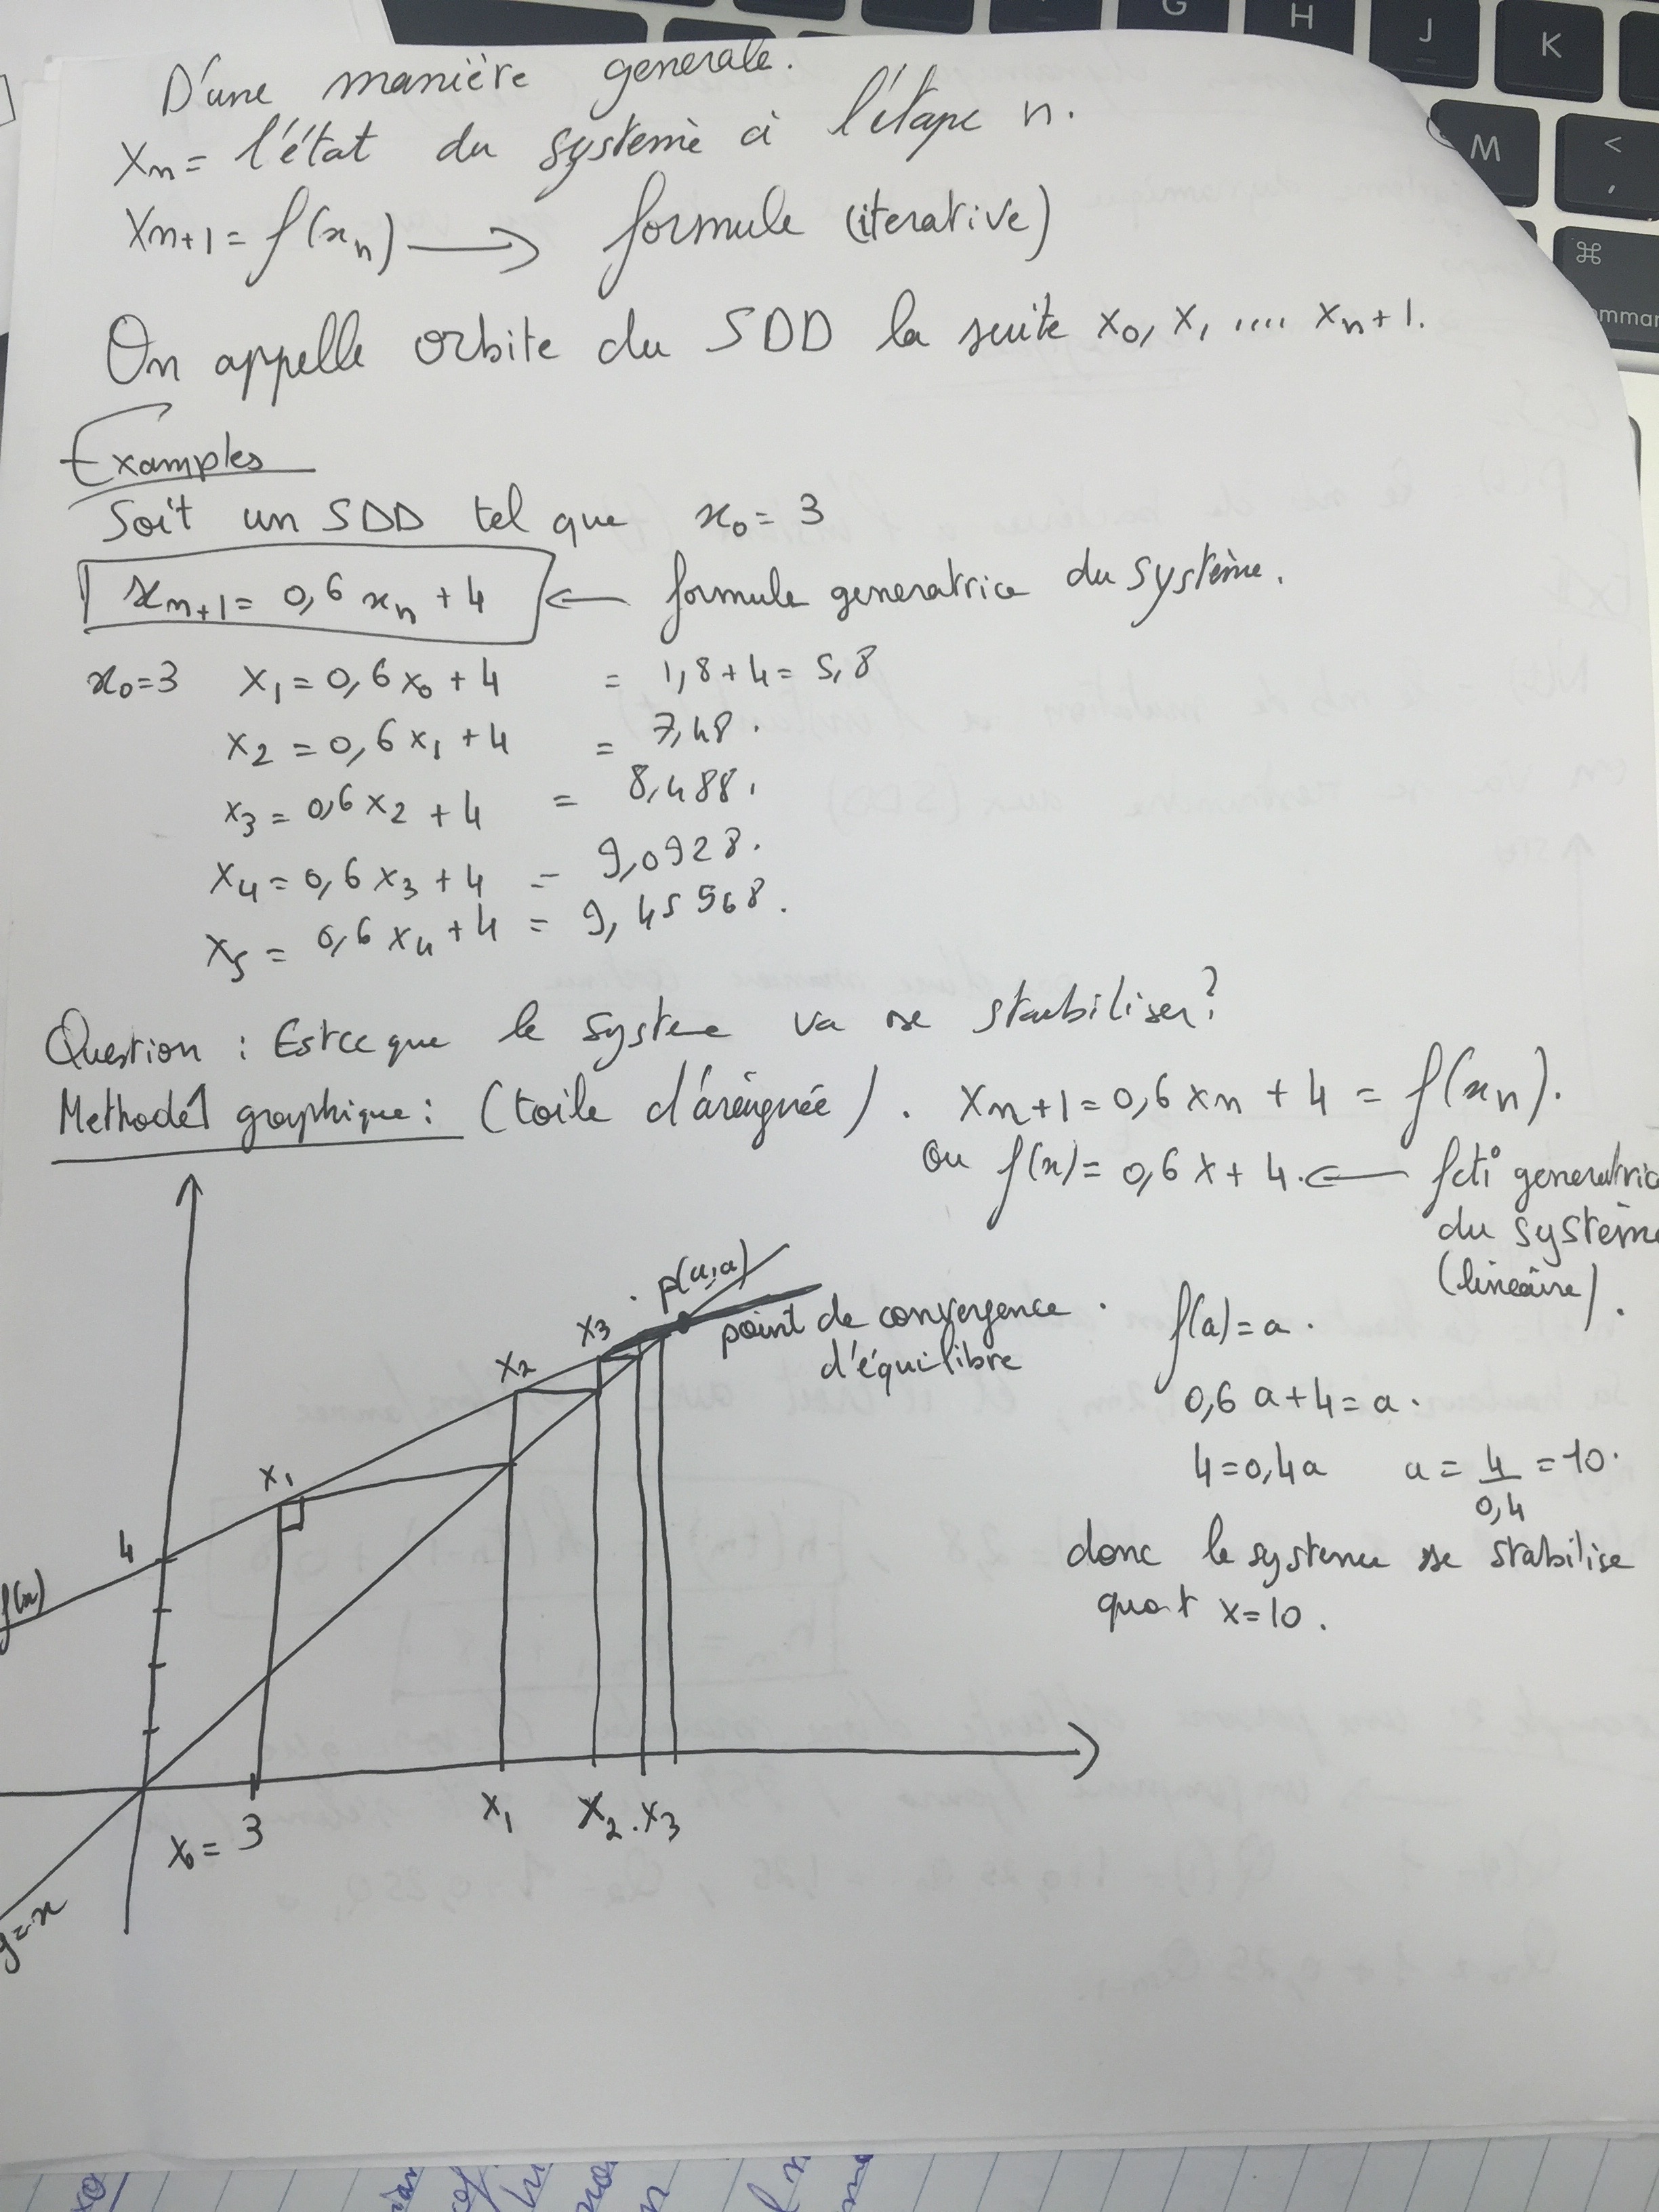 G H J K
M < ,
⌘
D'une manière generale.
Xn = l'état du système à l'étape n.
Xn+1 = f(xn) → formule (iterative)
On appelle orbite du SDD la suite x0, x1 .... xn+1.
Examples
Soit un SDD tel que x0 = 3
xn+1 = 0,6 xn + 4 ← formule generatrice du système.
x0=3 x1 = 0,6 x0 + 4 = 1,8+4 = 5,8
x2 = 0,6 x1 + 4 = 7,48.
x3 = 0,6 x2 + 4 = 8,488.
x4 = 0,6 x3 + 4 = 9,0928.
x5 = 0,6 x4 + 4 = 9,45568.
Question : Est ce que le systeme va se stabiliser?
Methode1 graphique : (toile d'araignée). xn+1 = 0,6 xn + 4 = f(xn).
ou f(x) = 0,6 x + 4. ← fct° generatric
du système
(linéaire).
. p(a,a)
x3 point de convergence. f(a) = a.
x2 d'équilibre
0,6 a + 4 = a.
x1 4 = 0,4a a = 4/0,4 = 10.
4 donc le systeme se stabilise
f(x) quat x=10.
x0 = 3 x1 x2 . x3
y=x